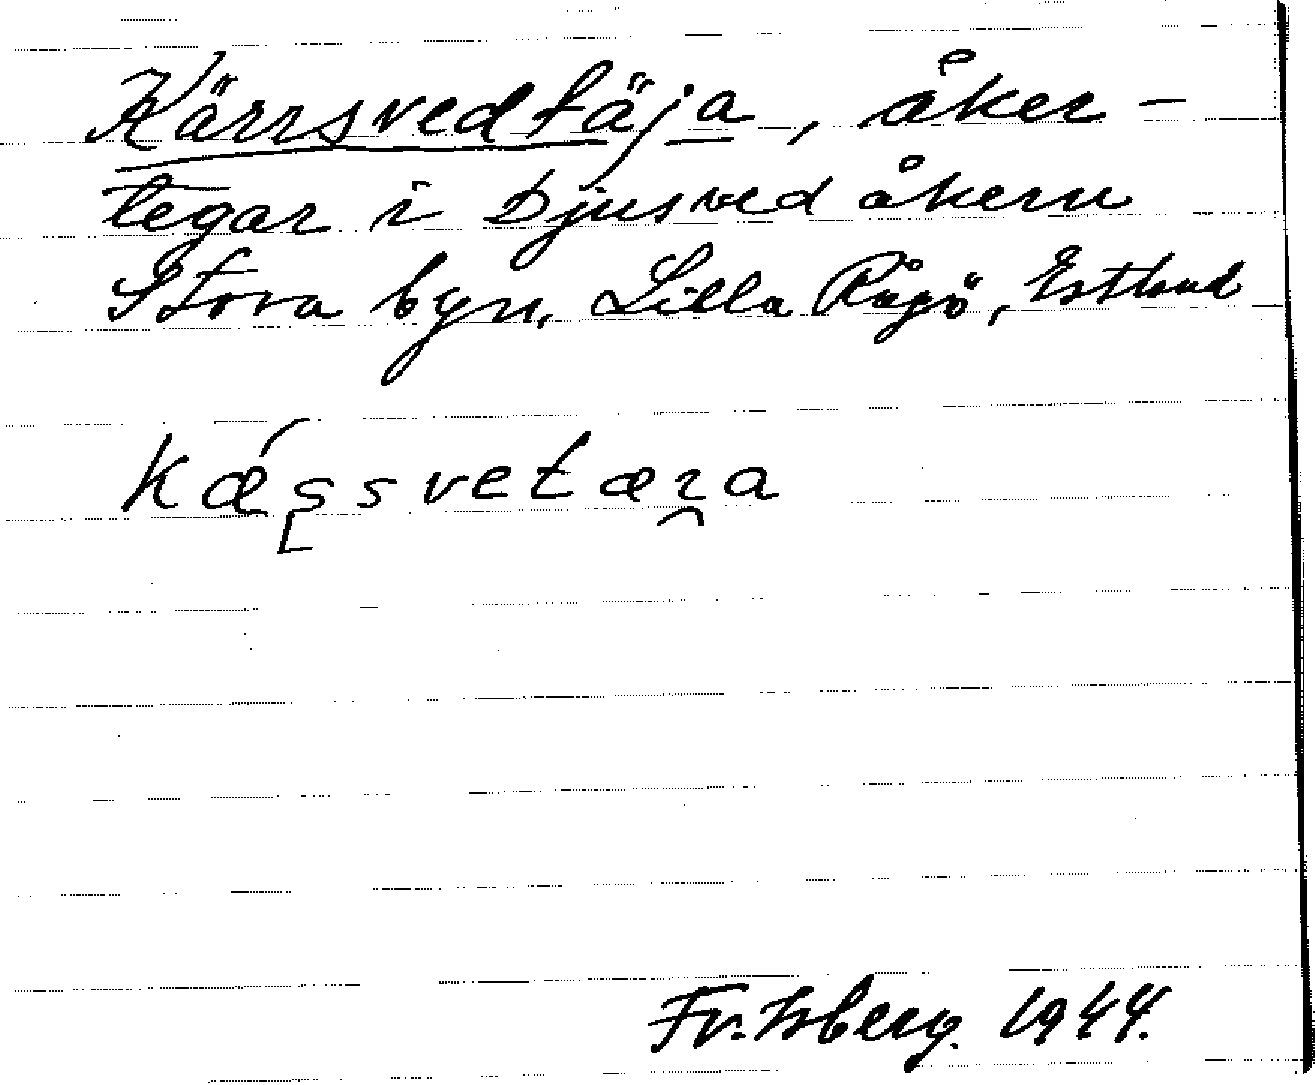 Kärrsvedtäja, åker-
tegar i Djusved åkern
Stora byn, Lilla Rågö, Estland
kæ´s̨svetæɿ̯a
Fr. Isberg. 1944.